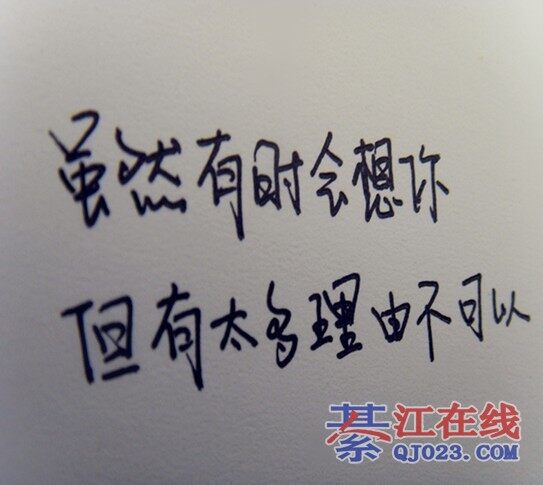 虽然有时会想你
但有太多理由不可以
綦江在线
QJ023.COM